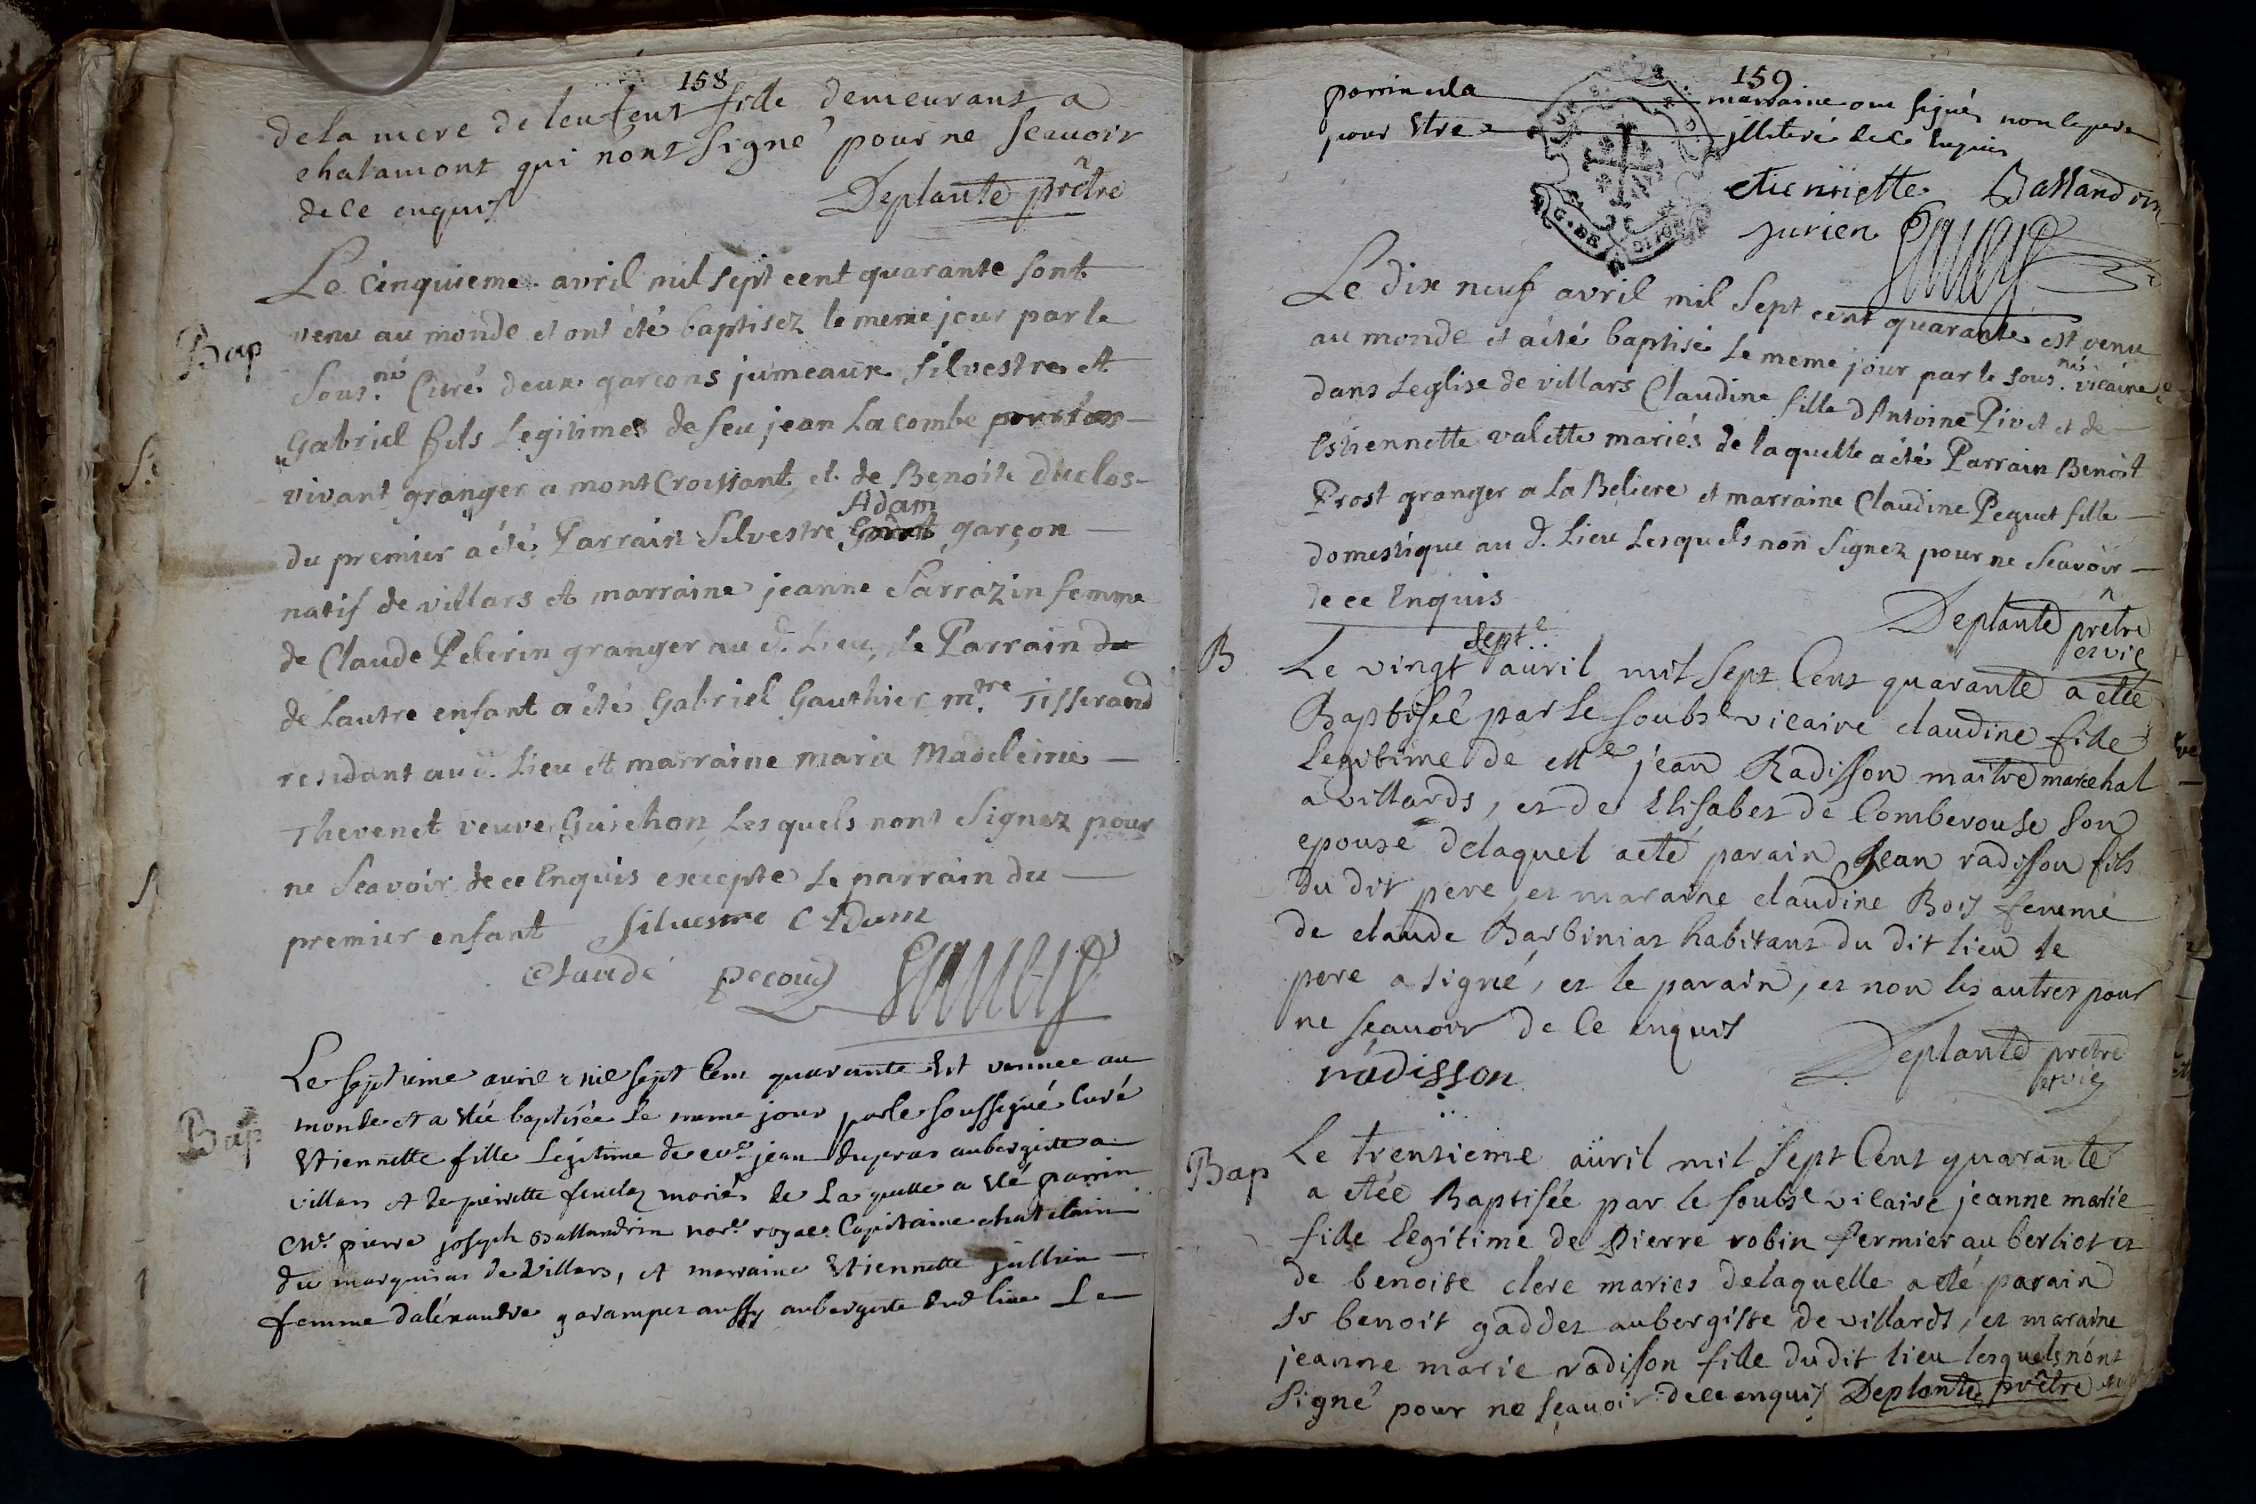 158
de la mere de leufent fille demeurant a
chalamont qui nont signé pour ne scauoir
de ce enquis Deplante prêtre
Bap
Le Cinquieme avril mil sept cent quarante sont
venu au monde et ont été baptisez le meme jour par le
sous.né Curé deux garcons jumeaux Silvestre et
Gabriel fils Legitimes de feu jean La combe
vivant granger a mont Croissant et de Benoite Duclos
Adam
du premier a été Parrain Silvestre garçon
natif de villars et marraine jeanne Sarrazin femme
de Claude Pelerin granger au d. Lieu, le Parrain du
de Lautre enfant a été Gabriel Gauthier m.tre Tisserand
residant au d. Lieu et marraine marie Madeleine
Thevenet veuve Guichon Lesquels nont Signez pour
ne Scavoir de ce Enquis excepte Le parrain du
premier enfant Silvestre Adam
Claude pecoud
Bap
Le septieme auril mil sept Cent quarante Est vennee au
monde et a Eté baptisée Le meme jour par le soussigné Curé
Etiennette fille Légitime de me jean dupras aubergiste a
villars et de pierrette mariés de La quelle a Eté parrin
me. pierre joseph Ballandrin nore. royal Capitaine chatelain
du marquisat de Villars, et marraine Etiennette jullien
femme dalexandre garampet aussy aubergiste dud lieu Le
159
parrin et la marraine ont signés non le pere
pour Etre illiteré de ce Enquis
etiennette Ballandrin
jurien
Le dix neuf avril mil Sept cent quarante est venu
au monde et a été baptisé Le meme jour par le sous.né vicaire
dans Leglise de villars Claudine fille d'Antoine Pivet et de
Estiennette valette mariés de laquelle a été Parrain Benoit
Prost granger a La Beliere et marraine Claudine Pequet fille
domestique au d. Lieu Lesquels nont Signez pour ne Scavoir
de ce Enquis
Deplante prêtre
et vic
B
septe
Le vingt auril mil sept Cent quarante a etee
Baptisée par le soubs.e vicaire claudine fille
legitime de Me jean Radisson maitre marechal
a villards, et de Elisabet de Comberouse son
epouse delaquel a eté parain Jean radisson fils
du dit pere, et maraine claudine Bois femme
de claude Barbiniat habitant du dit lieu le
pere a signé, et le parain, et non les autres pour
ne sçauoir de ce enquis
Deplante prêtre
et vic
radisson
Bap
Le trentieme auril mil sept Cent quarante
a etée Baptisée par le soubs.e vicaire jeanne marie
fille legitime de Pierre robin fermier au berliot et
de benoite clere maries delaquelle a eté parain
Sr benoit gaddet aubergiste de villards, et maraine
jeanne marie radisson fille dudit lieu lesquels nont
signé pour ne sçauoir de ce enquis Deplante prêtre